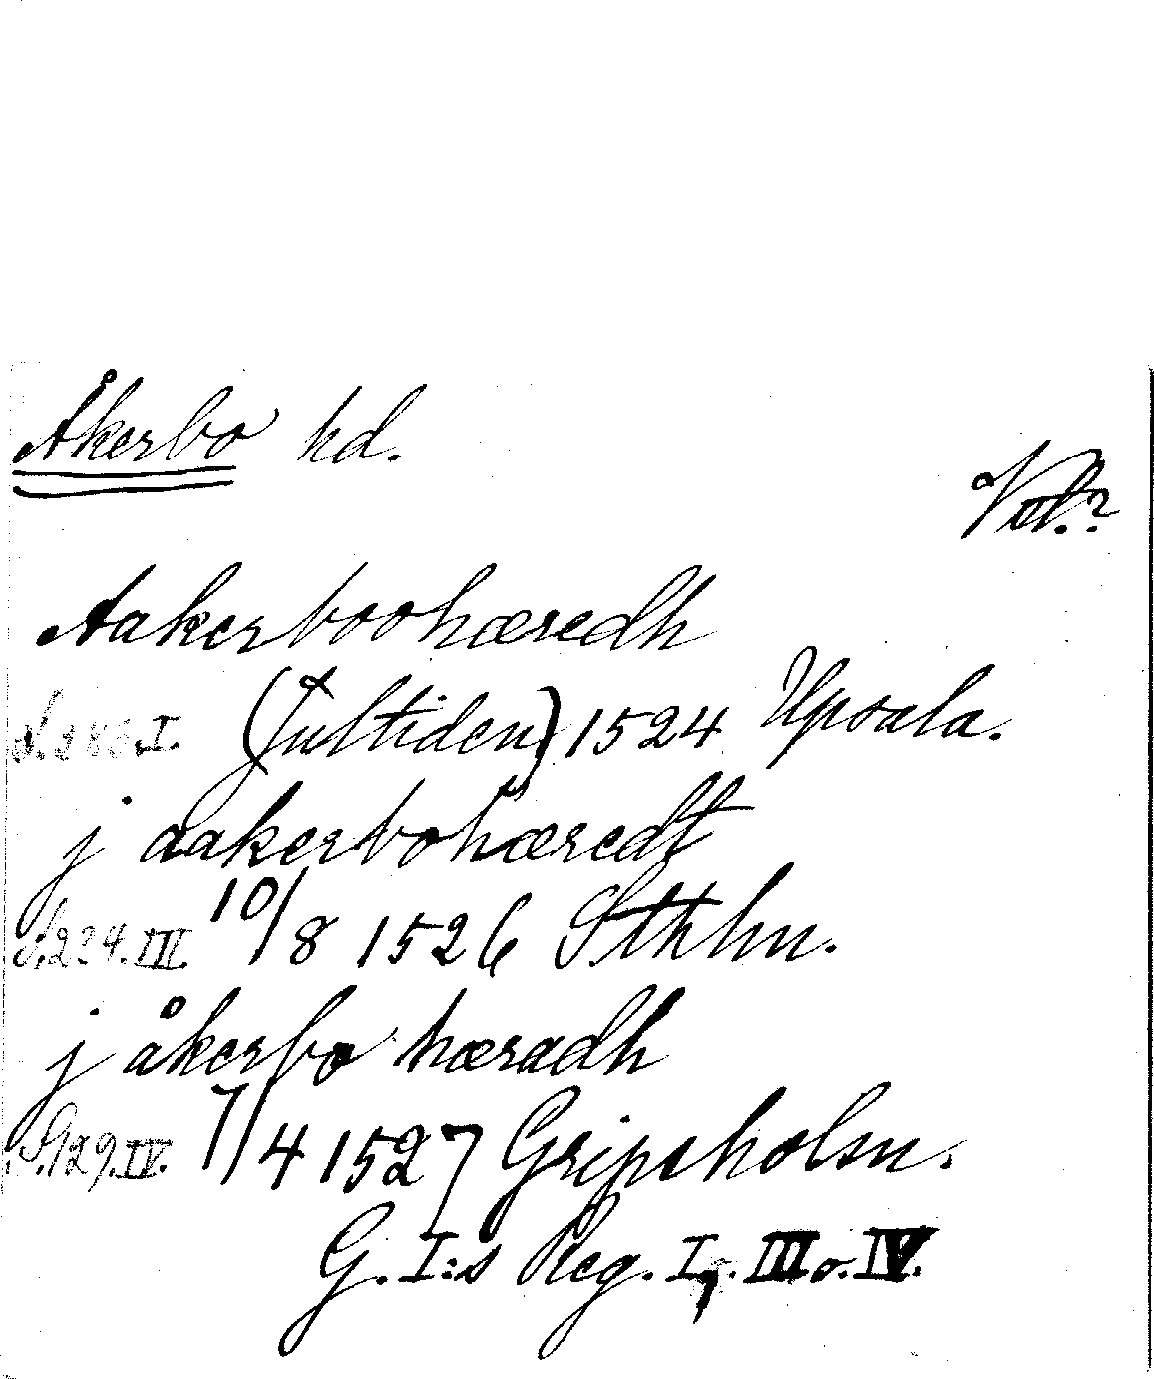 Åkerbo hd.
Vstl.?
Aakerboohæredh
S. 283. I. (Jultiden) 1524 Upsala.
j aakerbohæredt
S. 224. III. 10/8 1526 Sthlm.
j åkerbo hæradh
S. 129. IV. 7/4 1527 Gripsholm.
G. I:s Reg. I, III o. IV.